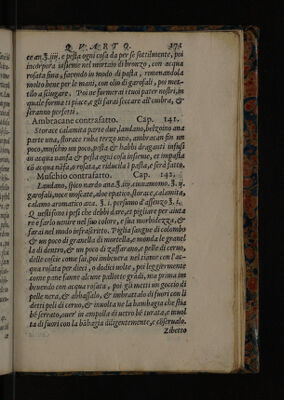 QVARTO. 171
ce an.ʒ.iiij. e pesta ogni cosa da per se sottilmente, poi
incorpora insieme nel mortaio di bronzo, con acqua
rosata fina, facendo in modo di pasta, remenandola
molto bene per le mani, con olio di garofali, poi met-
tilo a sciugare. Poi ne formerai i tuoi pater nostri, in
quale forma ti piace, e gli farai seccare all'ombra, &
seranno perfetti.
Ambracane contrafatto. Cap. 141.
Storace calamita parte due, laudano, belzoino ana
parte una, storace rubra terzo uno, ambracan fin un
poco, muschio un poco, pista & habbi draganti infusi
in acqua nanfa & pista ogni cosa insieme, et impasta
cō acqua nāfa, o rosata, e riducila ī pasta, e serà fatto.
Muschio contrafatto. Cap. 142.
Laudano, spico nardo ana.ʒ.iiij. cinamomo.ʒ.ij.
garofali, noce moscate, aloe epatico, storace, calamita,
calamo aromatico ana.ʒ.i. persumo d'assenzo.ʒ.i.
Questi sono i pesi che debbi dare, et pigliare per aiuta
re e farlo venire nel suo colore, e sua morbidezza, &
farai nel modo infrascritto. Piglia sangue di colombo
& un poco di granella di mortella, e monda le granel
la di dentro, & un poco di zaffarano, e pelle di cervo,
delle coscie come sai, poi imbevera nel timone con l'ac
qua rosata per dieci, o dodici volte, poi leggiermente
come pane fanne alcune pallotte grādi, ma prima im
bevendo con acqua rosata, poi gli metti un goccio di
pelle nera, & abbassalo, & imbrattalo di fuori con li
detti peli di cervo, & involta ne la bambagia che stia
bē serrato, over' in ampolla di vetro bē turata, e invol
ta di fuori con la bābagia diligentemente, e cōservalo.
Zibetto